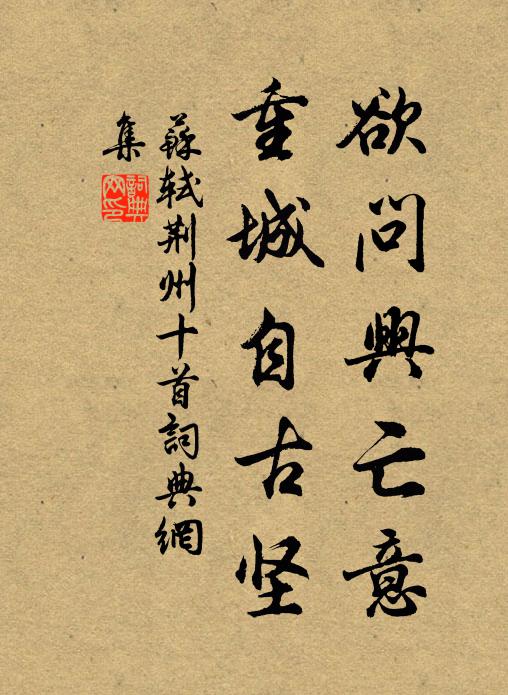 欲問興亡意
重城自古坚
蘇軾荆州十首詞典網
集
詞典網印